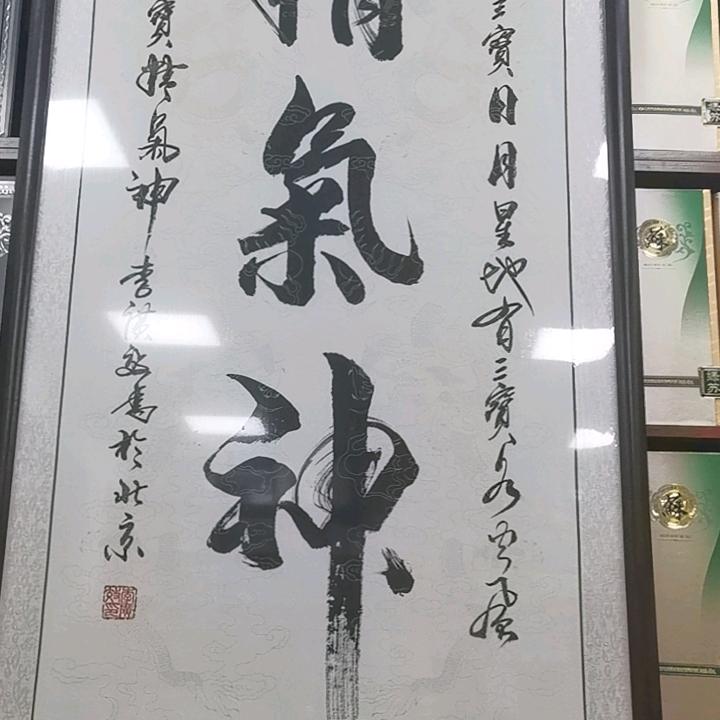 三寶日月星地有三寶水火風
精氣神
寶精氣神 李 書於北京